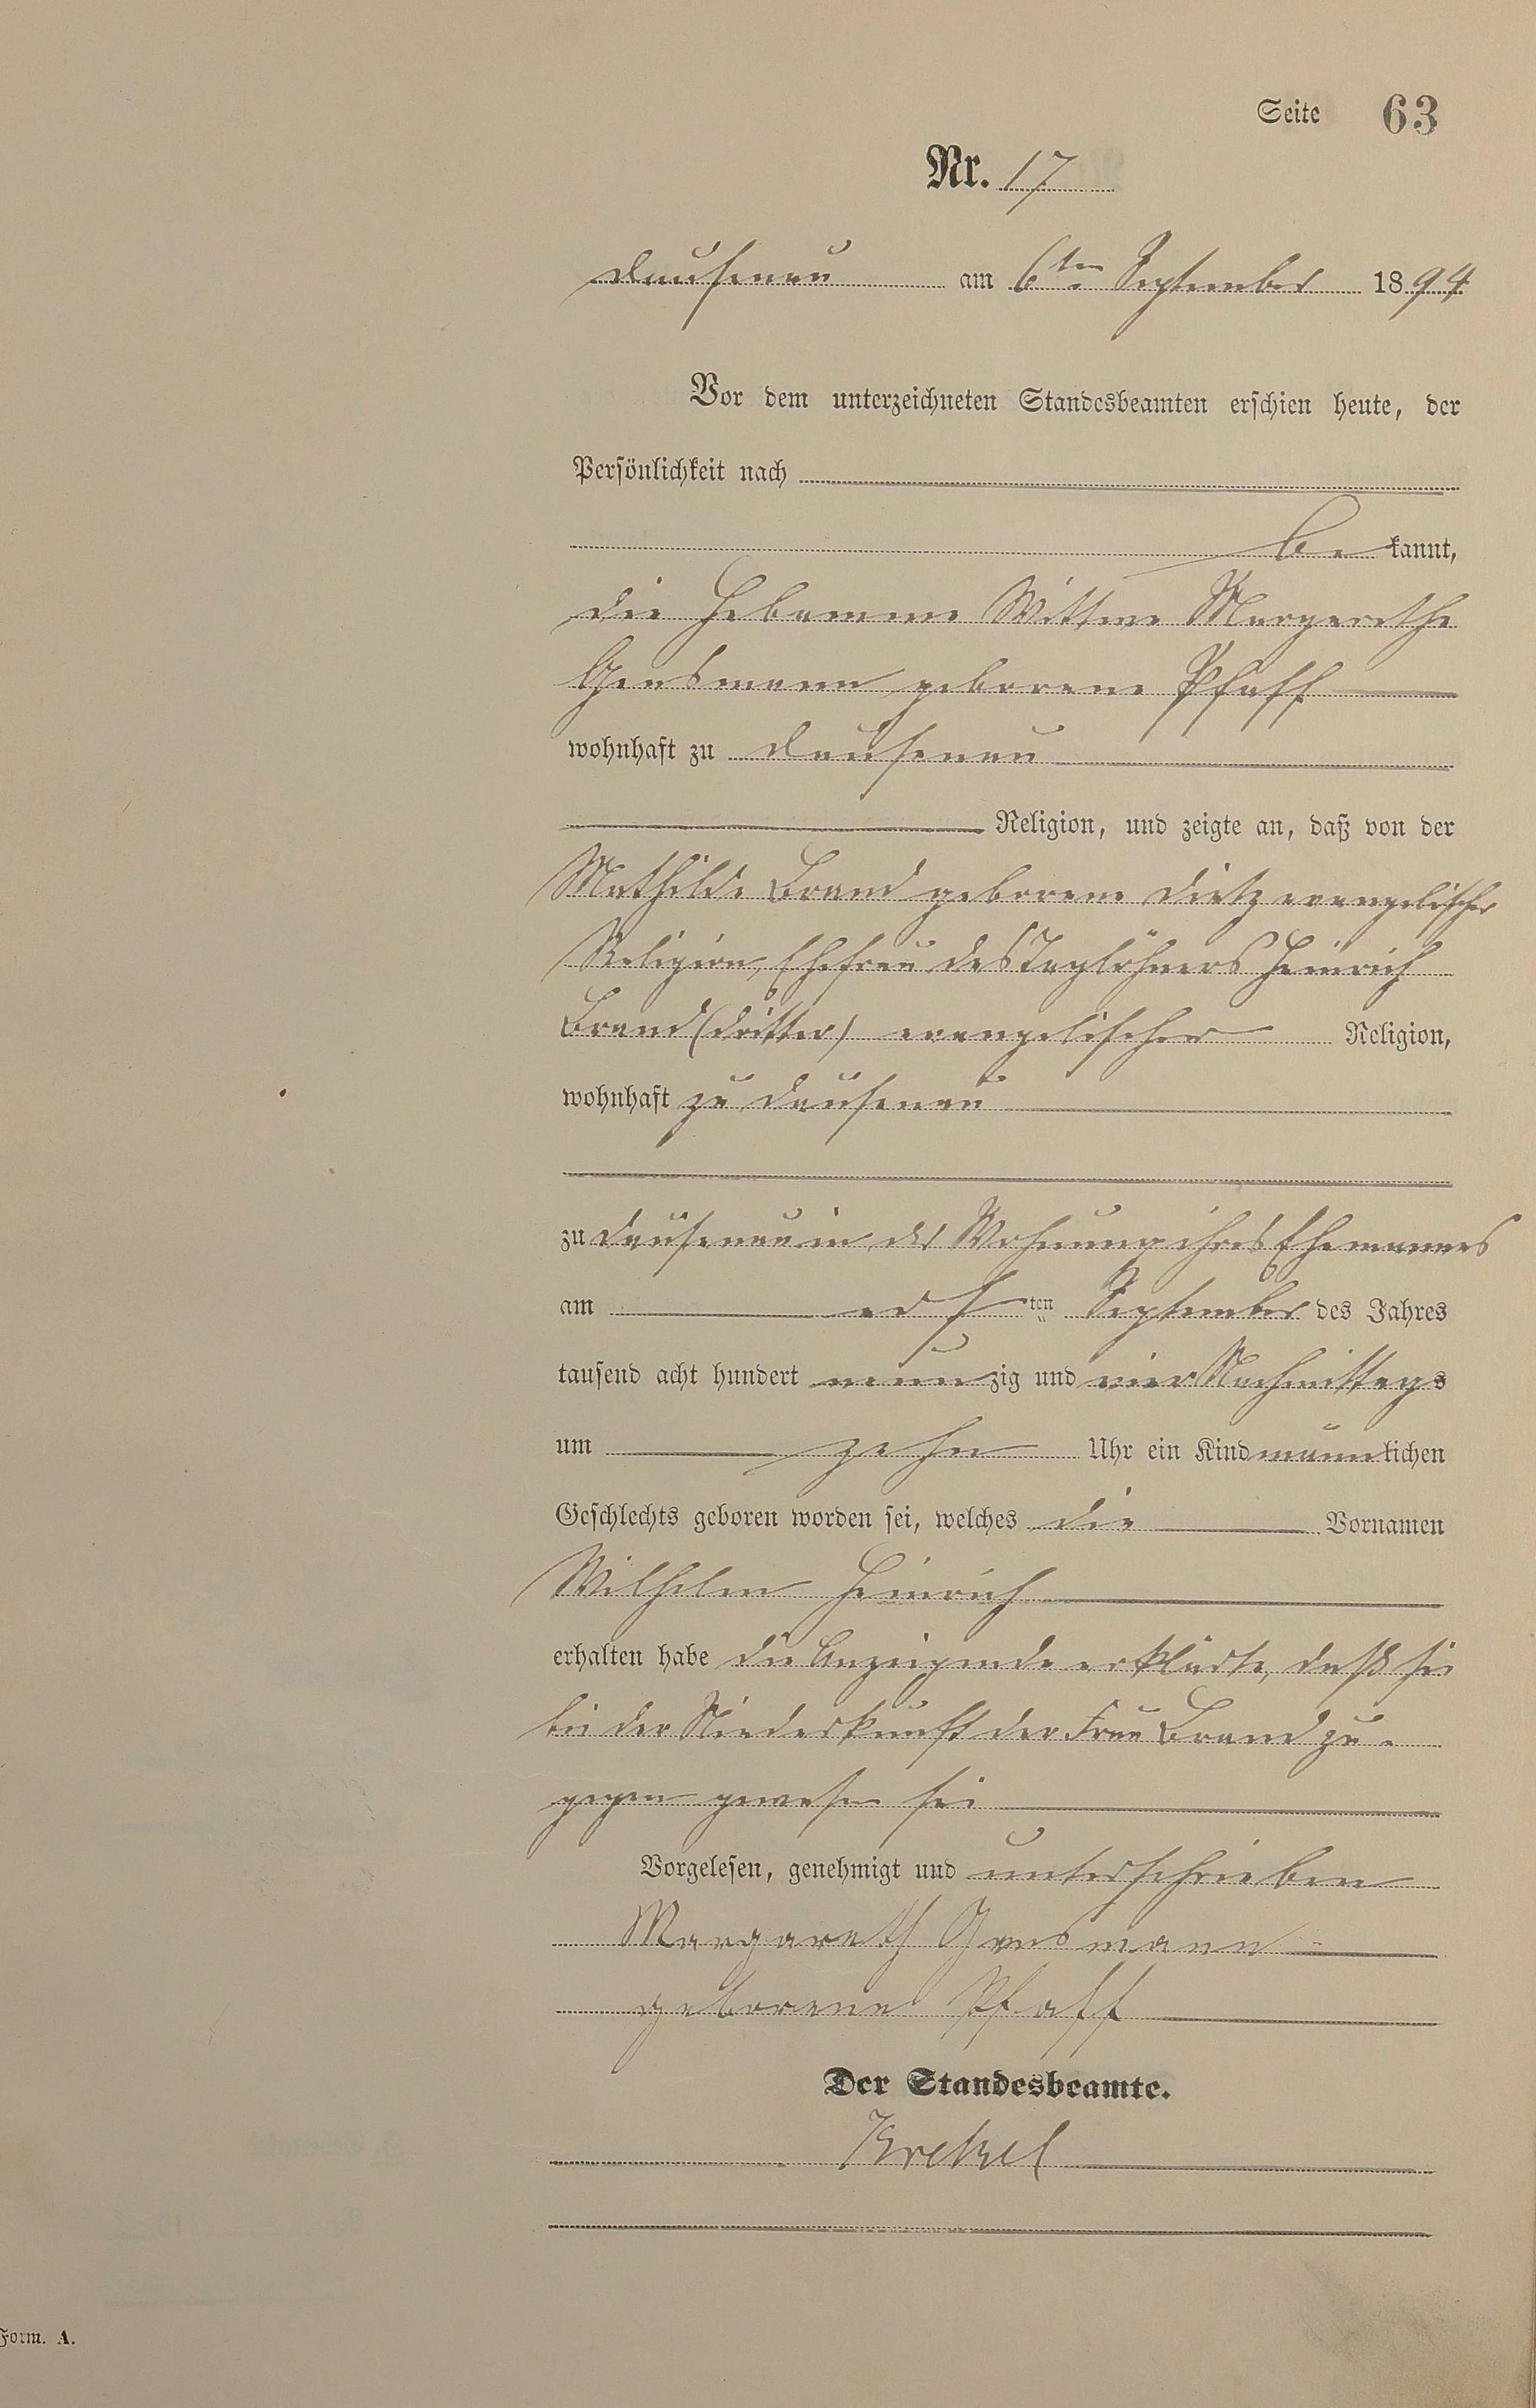 Seite 63
Nr. 17
Dausenau am 6ten September 1894
Vor dem unterzeichneten Standesbeamten erschien heute, der
Persönlichkeit nach
be kannt,
die Hebamme Wittwe Margarethe
Gensmann geborene Pfaff
wohnhaft zu Dausenau
Religion, und zeigte an, daß von der
Mathilde Brand geborene Dietz evangelischer
Religion, Ehefrau des Taglöhners Heinrich
Brand (dritter) evangelischer Religion,
wohnhaft zu Dausenau
zu Dausenau in der Wohnung ihres Ehemannes
am ten September des Jahres
tausend acht hundert neunzig und vier Nachmittags
um zehn Uhr ein Kind männlichen
Geschlechts geboren worden sei, welches die Vornamen
Wilhelm Heinrich
erhalten habe die Anzeigende erklärte, daß sie
bei der Niederkunft der Frau Brand zu-
gegen gewesen sei
Vorgelesen, genehmigt und unterschrieben
Margareth Gensmann
geborene Pfaff
Der Standesbeamte.
Krekel
Form. A.